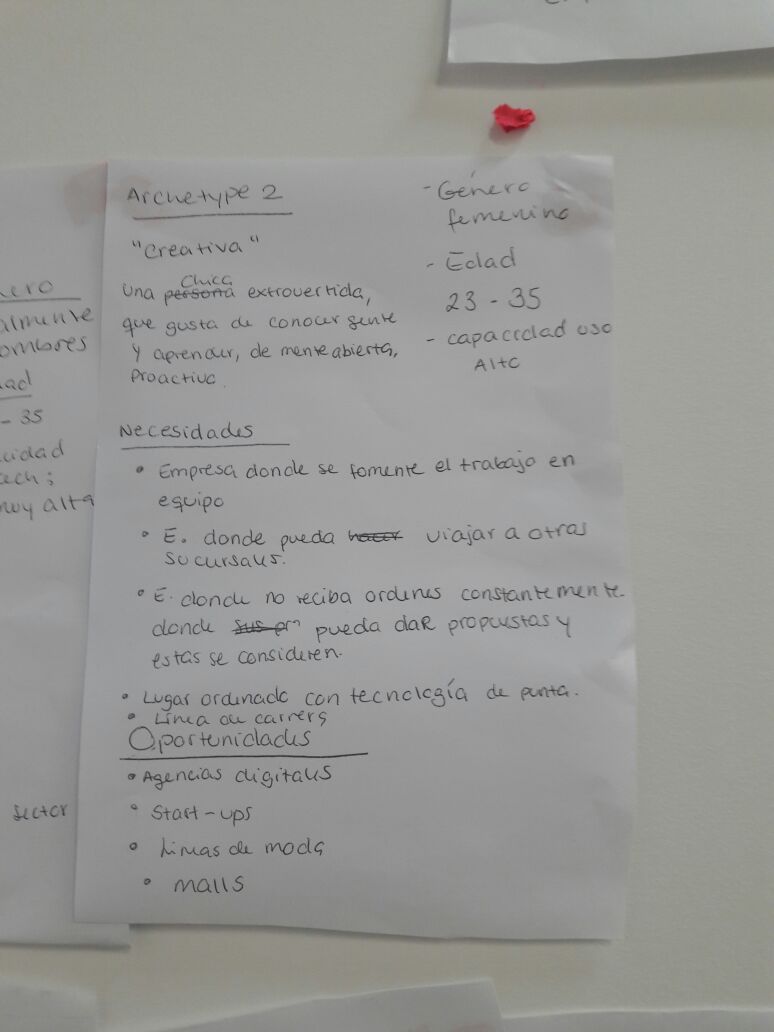 Archetype 2
"Creativa"
Chica
Una persona extrovertida,
que gusta de conocer gente
y aprender, de mente abierta,
Proactiva.
- Género
femenino
- Edad
23 - 35
- capacidad uso
Alto
Necesidades
• Empresa donde se fomente el trabajo en
equipo
• E. donde pueda hacer viajar a otras
sucursales.
• E. donde no reciba ordenes constantemente.
donde pueda dar propuestas y
estas se consideren.
• Lugar ordenado con tecnología de punta.
• Línea de carrera
Oportunidades
• Agencias digitales
• Start-ups
• Líneas de moda
• malls
nero
almente
ombres
dad
- 35
cidad
tech;
muy alta
sector